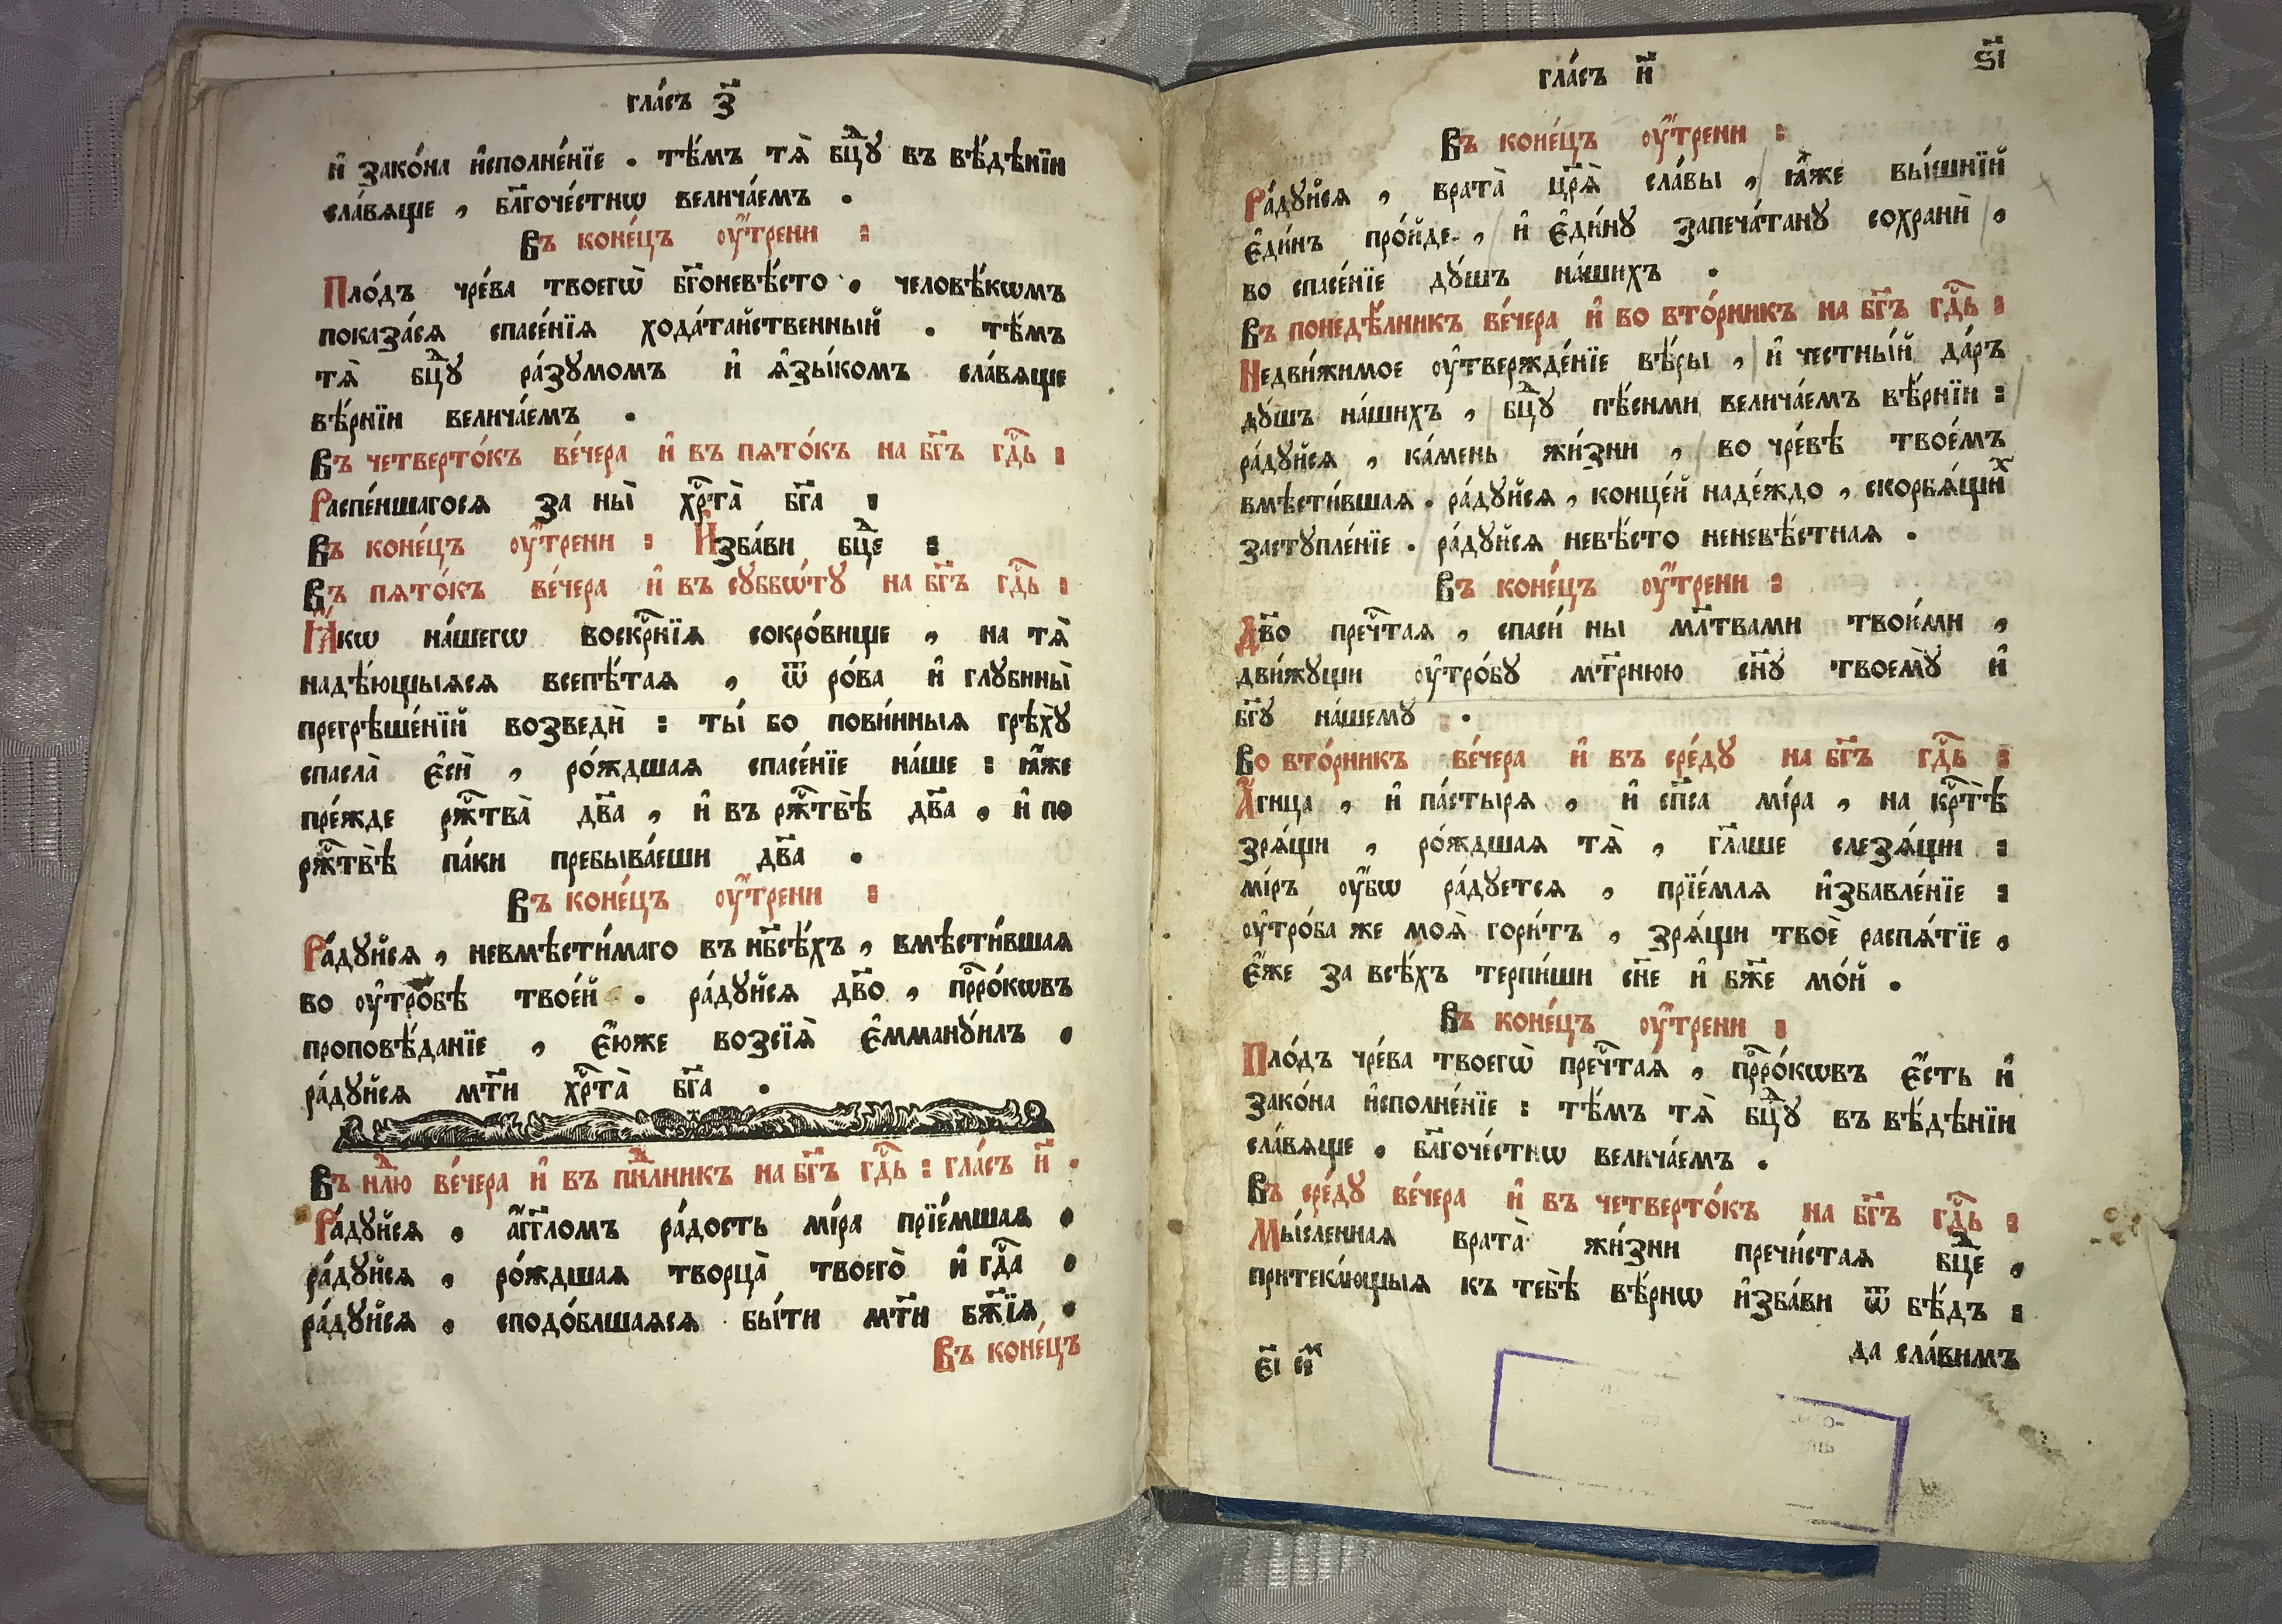 гла́съ з҃
и҆ зако́на и҆сполне́нїе . тѣ́мъ тѧ̀ бц҃ꙋ въ вѣ́дѣнїи
сла́вѧще , бл҃гоче́стнѡ велича́емъ .
Въ коне́цъ оу҆́трени :
Пло́дъ чре́ва твоегѡ̀ бг҃оневѣ́сто . человѣ́кѡмъ
показа́сѧ спасе́нїѧ хода́тайственный . тѣ́мъ
тѧ̀ бц҃ꙋ ра́зꙋмомъ и҆ ѧ҆зы́комъ сла́вѧще
вѣ́рнїи велича́емъ .
Въ четверто́къ ве́чера и҆ въ пѧто́къ на бг҃ъ гд҇ь :
Распе́ншагосѧ за ны̀ хр҇та̀ бг҃а :
Въ коне́цъ оу҆́трени : И҆зба́ви бц҃е :
Въ пѧто́къ ве́чера и҆ въ сꙋббѡ́тꙋ на бг҃ъ гд҇ь :
Ꙗ҆́кѡ на́шегѡ воскр҇нїѧ сокро́вище , на тѧ̀
надѣ́ющыѧсѧ всепѣ́таѧ , ѿ ро́ва и҆ глꙋбины̀
прегрѣше́нїй возведѝ : ты́ бо пови́нныѧ грѣхꙋ̀
спасла̀ є҆сѝ , ро́ждшаѧ спасе́нїе на́ше : ꙗ҆́же
пре́жде рж҇тва̀ дв҃а , и҆ въ рж҇твѣ̀ дв҃а , и҆ по
рж҇твѣ̀ па́ки пребыва́еши дв҃а .
Въ коне́цъ оу҆́трени :
Ра́дꙋйсѧ , невмѣсти́маго въ нб҃сѣ́хъ , вмѣсти́вшаѧ
во оу҆тро́бѣ твое́й . ра́дꙋйсѧ дв҃о , прⷪ҇ро́кѡвъ
проповѣ́данїе , є҆́юже возсїѧ̀ є҆ммандꙋ́илъ .
ра́дꙋйсѧ мт҃и хр҇та̀ бг҃а .
Въ нⷣлю ве́чера и҆ въ пнⷣлникъ на бг҃ъ гд҇ь : гла́съ и҃ .
Ра́дꙋйсѧ , а҆́гг҃ломъ ра́дость мі́ра прїе́мшаѧ .
ра́дꙋйсѧ , ро́ждшаѧ творца̀ твоего̀ и҆ гд҇а .
ра́дꙋйсѧ , сподо́блшаѧсѧ бы́ти мт҃и бж҃їѧ .
Въ коне́цъ
гла́съ и҃
ѕ҃і
Въ коне́цъ оу҆́трени :
Ра́дꙋйсѧ , врата̀ цр҃ѧ̀ сла́вы , ꙗ҆́же вы́шнїй
є҆ди́нъ про́йде , и҆ є҆ди́нꙋ запеча́танꙋ сохранѝ ,
во спасе́нїе дꙋ́шъ на́шихъ .
Въ понедѣ́лникъ ве́чера и҆ во вто́рникъ на бг҃ъ гд҇ь :
Недви́жимое оу҆твержде́нїе вѣ́ры , и҆ честны́й да́ръ
дꙋ́шъ на́шихъ , бц҃ꙋ пѣ́сньми велича́емъ вѣ́рнїи :
ра́дꙋйсѧ , ка́мень жи́зни , во чре́вѣ твое́мъ
вмѣсти́вшаѧ . ра́дꙋйсѧ , конце́й наде́ждо , скорбѧ́щиⷯ
застꙋпле́нїе . ра́дꙋйсѧ невѣ́сто неневѣ́стнаѧ .
Въ коне́цъ оу҆́трени :
Дв҃о преч҇таѧ , спасѝ ны мл҃твами твои́ми ,
дви́жꙋщи оу҆тро́бꙋ мт҃рнюю сн҃ꙋ твоемꙋ̀ и҆
бг҃ꙋ на́шемꙋ .
Во вто́рникъ ве́чера и҆ въ сре́дꙋ на бг҃ъ гд҇ь :
А҆́гнца , и҆ па́стырѧ , и҆ сп҃са мі́ра , на кр҇тѣ̀
зрѧ́щи , ро́ждшаѧ тѧ̀ , гл҃аше слезѧ́щи :
мі́ръ оу҆́бѡ ра́дꙋетсѧ , прїе́млѧ и҆збавле́нїе :
оу҆тро́ба же моѧ̀ гори́тъ , зрѧ́щи твоѐ распѧ́тїе ,
є҆́же за всѣ́хъ терпи́ши сн҃е и҆ бж҃е мо́й .
Въ коне́цъ оу҆́трени :
Пло́дъ чре́ва твоегѡ̀ преч҇таѧ , прⷪ҇ро́кѡвъ є҆́сть и҆
зако́на и҆сполне́нїе : тѣ́мъ тѧ̀ бц҃ꙋ въ вѣ́дѣнїи
сла́вѧще . бл҃гоче́стнѡ велича́емъ .
Въ сре́дꙋ ве́чера и҆ въ четверто́къ на бг҃ъ гд҇ь :
Мы́сленнаѧ врата̀ жи́зни пречи́стаѧ бц҃е ,
притека́ющыѧ къ тебѣ̀ вѣ́рнѡ и҆зба́ви ѿ бѣ́дъ :
да сла́вимъ